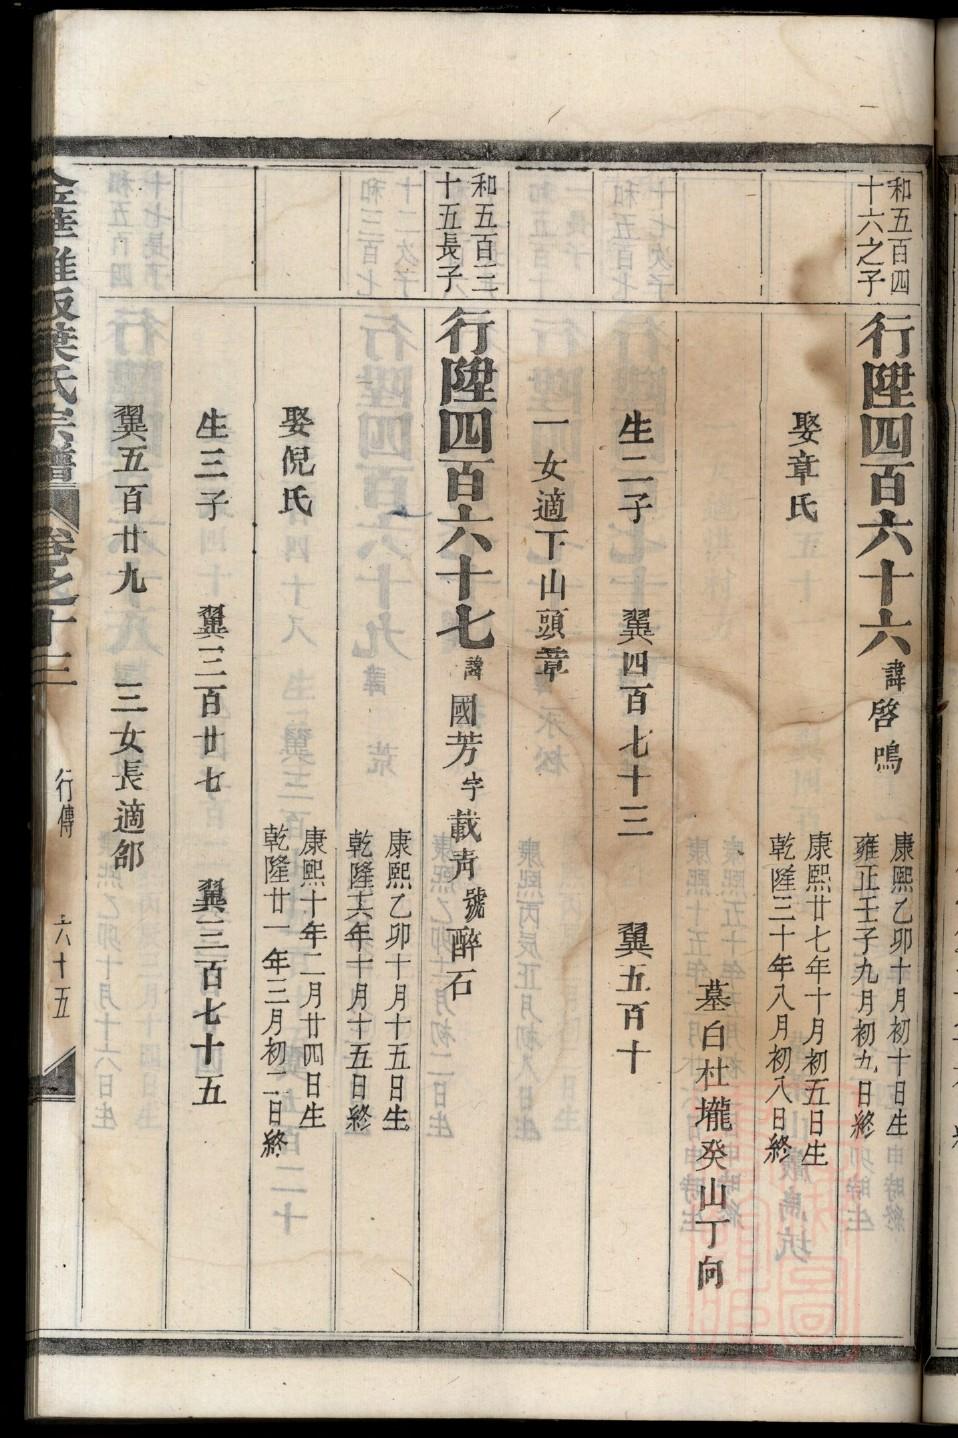 和五百四
十六之子
行陞四百六十六諱啓鳴
康熙乙卯十月初十日生
雍正壬子九月初九日終
娶章氏
康熙廿七年十月初五日生
乾隆三十年八月初八日終
墓白杜壠癸山丁向
生二子 翼四百七十三 翼五百十
一女適下山頭章
和五百三
十五長子
行陞四百六十七諱國芳字載青號醉石
康熙乙卯十月十五日生
乾隆六年十月十五日終
娶倪氏
康熙十年二月廿四日生
乾隆廿一年三月初二日終
生三子 翼三百廿七 翼三百七十五
翼五百廿九 三女長適郃
金華雅畈葉氏宗譜 卷之十三 行傳 六十五